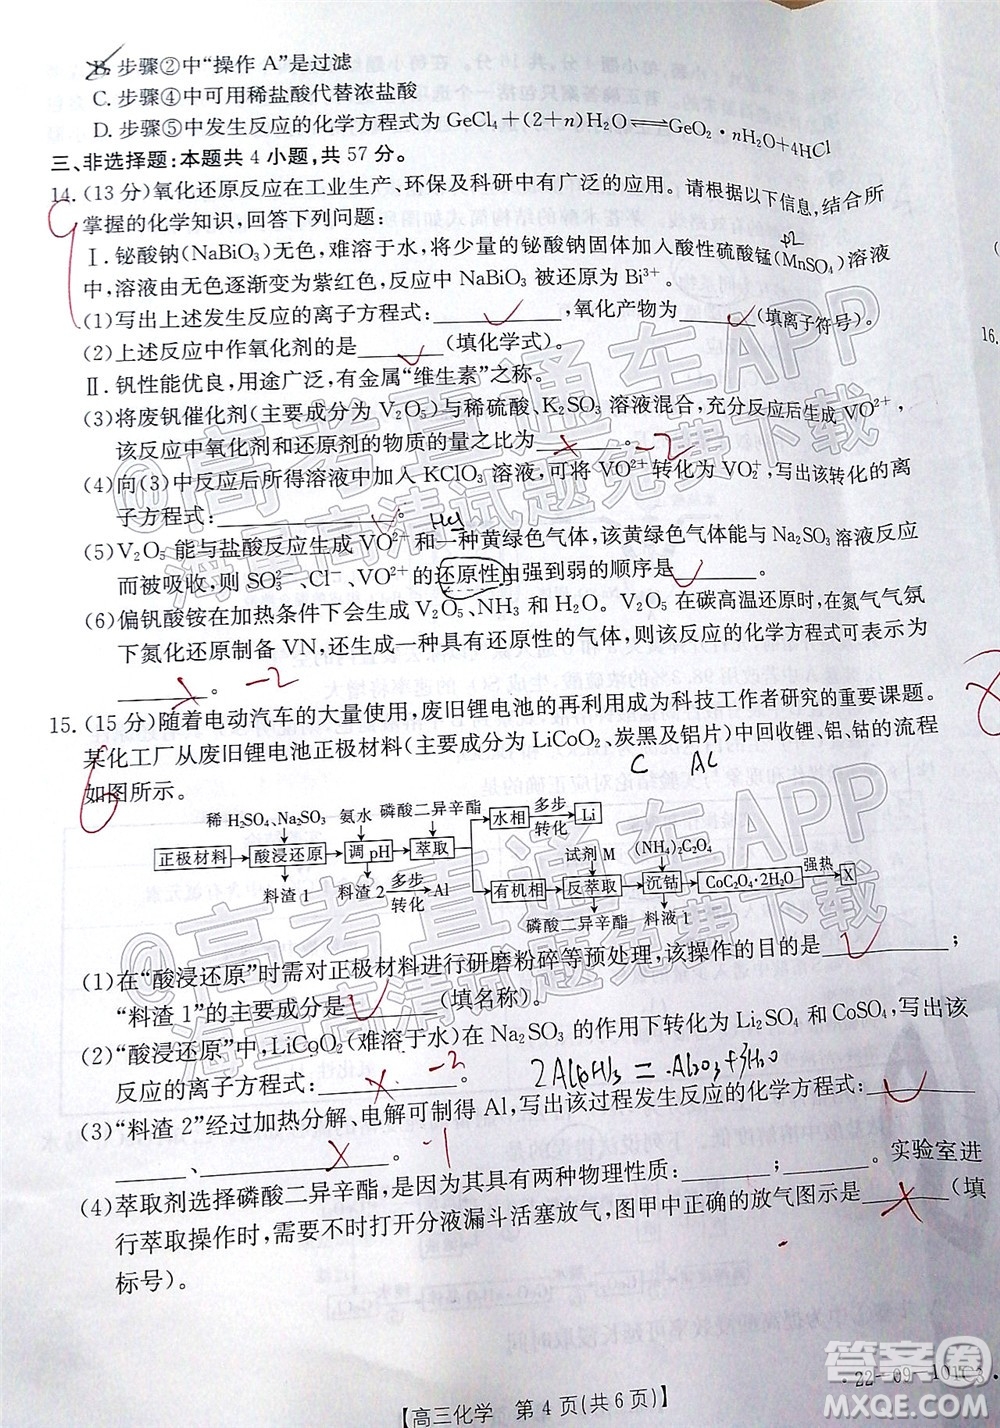 B. 步骤②中“操作 A”是过滤
C. 步骤④中可用稀盐酸代替浓盐酸
D. 步骤⑤中发生反应的化学方程式为 GeCl₄+(2+n)H₂O⇌GeO₂·nH₂O+4HCl
三、非选择题:本题共 4 小题,共 57 分。
14.(13 分)氧化还原反应在工业生产、环保及科研中有广泛的应用。请根据以下信息,结合所
掌握的化学知识,回答下列问题:
+2
Ⅰ.铋酸钠(NaBiO₃)无色,难溶于水,将少量的铋酸钠固体加入酸性硫酸锰(MnSO₄)溶液
中,溶液由无色逐渐变为紫红色,反应中 NaBiO₃ 被还原为 Bi³⁺。
(1)写出上述发生反应的离子方程式:________,氧化产物为________(填离子符号)。
(2)上述反应中作氧化剂的是________(填化学式)。
Ⅱ.钒性能优良,用途广泛,有金属“维生素”之称。
(3)将废钒催化剂(主要成分为 V₂O₅)与稀硫酸、K₂SO₃ 溶液混合,充分反应后生成 VO²⁺,
该反应中氧化剂和还原剂的物质的量之比为________。 -2
(4)向(3)中反应后所得溶液中加入 KClO₃ 溶液,可将 VO²⁺转化为 VO₂⁺,写出该转化的离
子方程式:________。
HCl
(5)V₂O₅ 能与盐酸反应生成 VO²⁺和一种黄绿色气体,该黄绿色气体能与 Na₂SO₃ 溶液反应
而被吸收,则 SO₃²⁻、Cl⁻、VO²⁺的还原性由强到弱的顺序是________。
(6)偏钒酸铵在加热条件下会生成 V₂O₅、NH₃ 和 H₂O。V₂O₅ 在碳高温还原时,在氮气气氛
下氮化还原制备 VN,还生成一种具有还原性的气体,则该反应的化学方程式可表示为
________。 -2
15.(15 分)随着电动汽车的大量使用,废旧锂电池的再利用成为科技工作者研究的重要课题。
某化工厂从废旧锂电池正极材料(主要成分为 LiCoO₂、炭黑及铝片)中回收锂、铝、钴的流程
如图所示。
C Al
稀 H₂SO₄、Na₂SO₃ 氨水 磷酸二异辛酯 水相 多步转化 Li
试剂 M (NH₄)₂C₂O₄
正极材料 酸浸还原 调 pH 萃取
有机相 反萃取 沉钴 CoC₂O₄·2H₂O 强热 X
料渣 1 料渣 2 多步转化 Al
磷酸二异辛酯 料液 1
(1)在“酸浸还原”时需对正极材料进行研磨粉碎等预处理,该操作的目的是________;
“料渣 1”的主要成分是________(填名称)。
(2)“酸浸还原”中,LiCoO₂(难溶于水)在 Na₂SO₃ 的作用下转化为 Li₂SO₄ 和 CoSO₄,写出该
反应的离子方程式:________。 -2 2Al(OH)₃=Al₂O₃+3H₂O
(3)“料渣 2”经过加热分解、电解可制得 Al,写出该过程发生反应的化学方程式:________
________、________。 -1
(4)萃取剂选择磷酸二异辛酯,是根据其具有两种物理性质:________、________。实验室进
行萃取操作时,需要不时打开分液漏斗活塞放气,图甲中正确的放气图示是________(填
标号)。
16.
【高三化学 第 4 页(共 6 页)】
·22-09-101C3·
@高考直通车APP
海量高清试题免费下载
@高考直通车APP
海量高清试题免费下载
答案圈
MXQE.COM